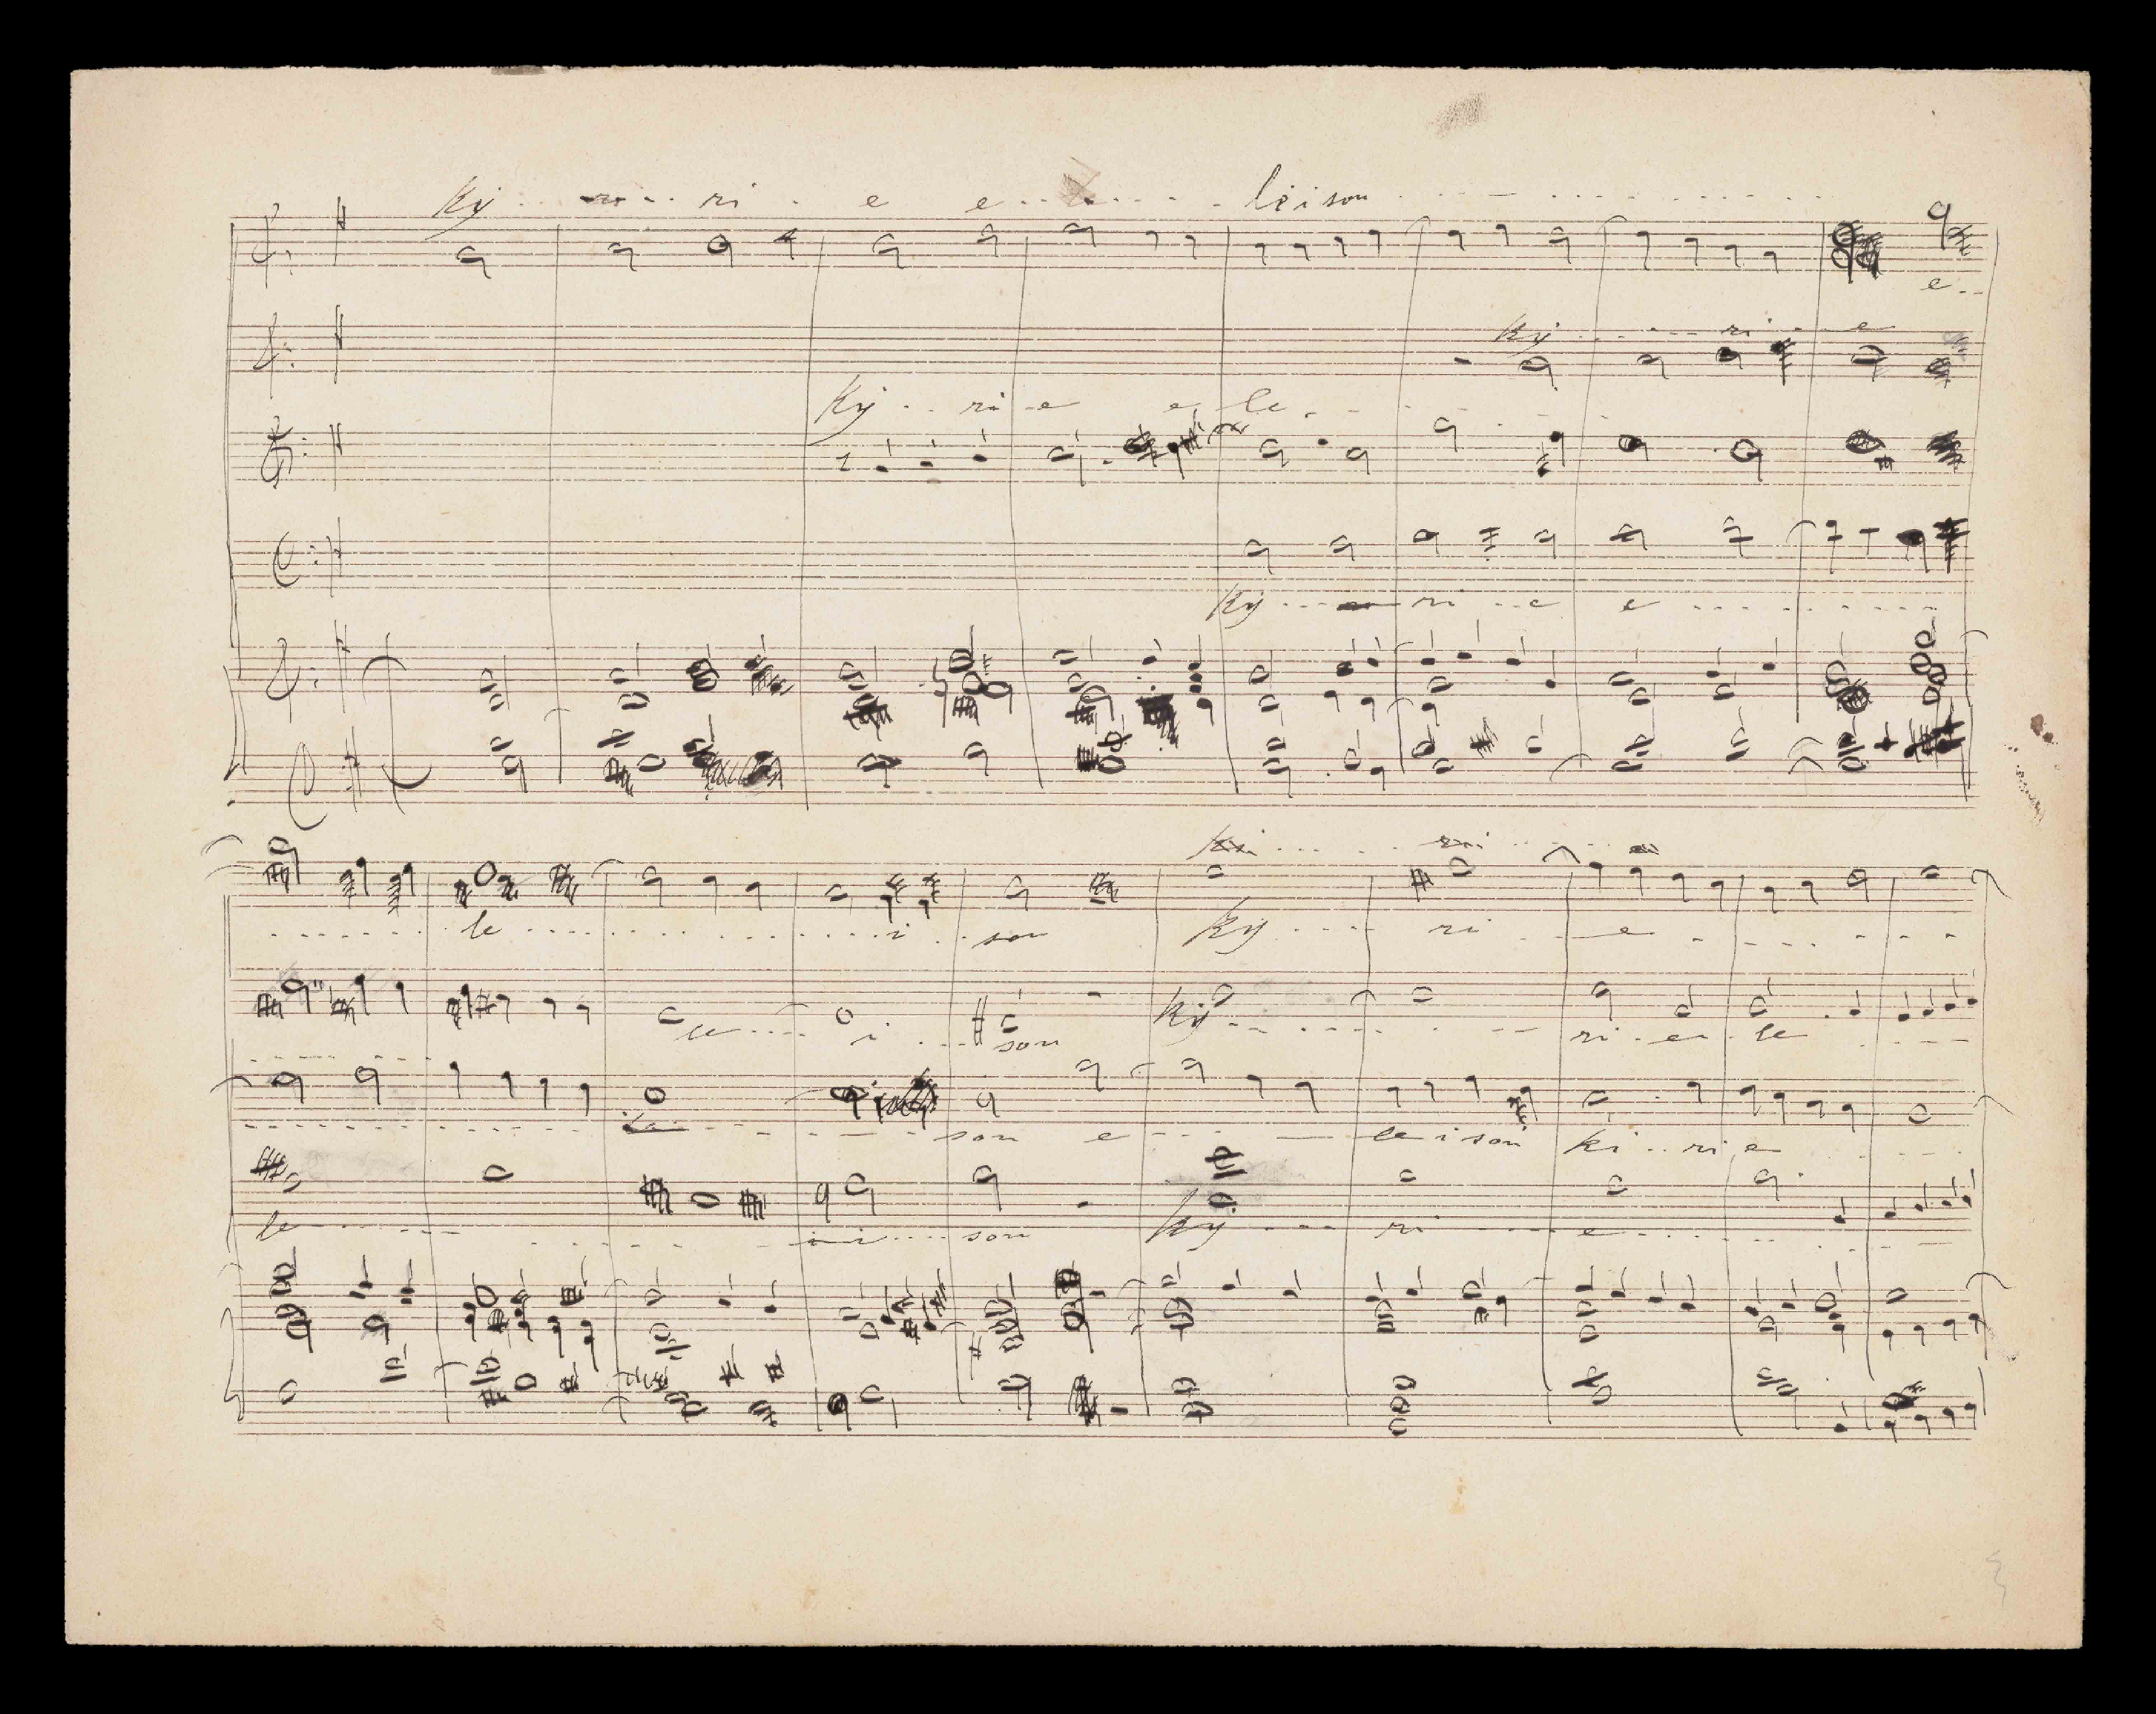 Ky . . ri . . ri . e e . . . . . . leison . . . . . . . . .
e . .
Ky . . . . . ri . e
Ky . . ri - e e le . - - - - -
Ky . . . . ri . . e e . . . . . . . . .
ri
. . . . . . le . . . . . . . . . . . . . i . . son Ky . . . . ri . - e - - - - - -
le . . . . i . . . . son Ky . . . . . . - - ri . e . le . . - - -
- - - - - - - - - - - - son e - - - - leison ki . . ri e . . . . .
le . . . . . . . . . . i . . . . son Ky - - - ri - - - e . . . . . . . .